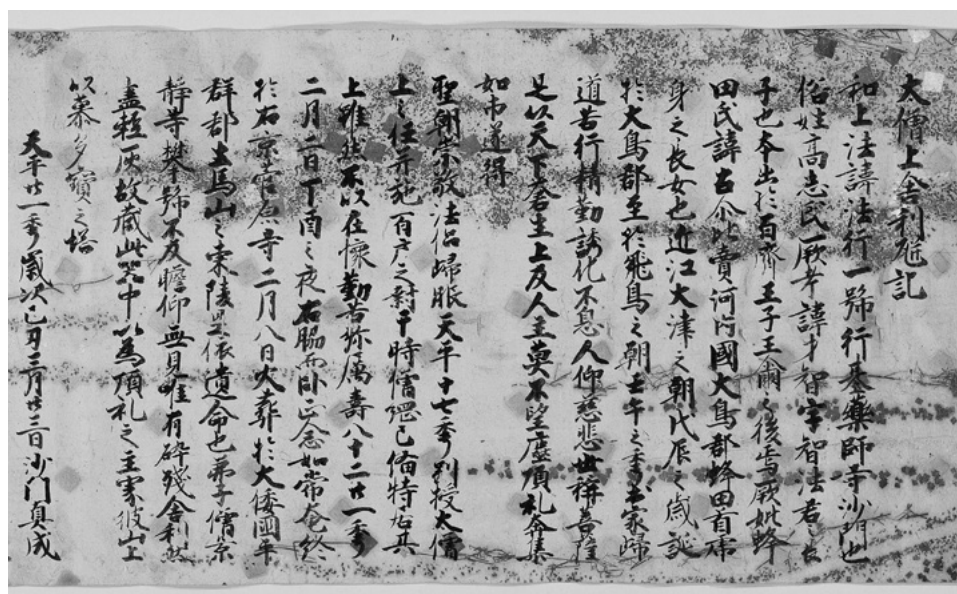 大僧上舎利瓶記
和上法諱法行一号行基薬師寺沙門也
俗姓高志氏厥考諱才智字智法君之長
子也本出於百済王子王爾之後焉厥妣蜂
田氏諱古尓比賣河内國大鳥郡蜂田首虎
身之長女也近江大津之朝戊辰之歳誕
於大鳥郡至於飛鳥之朝壬午之季出家歸
道苦行精勤誘化不息人仰慈悲世稱菩薩
是以天下蒼生上及人主莫不望塵頂礼奔集
如市遂得
聖朝崇敬法侶歸服天平十七季別授大僧
上之任并施百戸之封于時僧綱已備特居其
上雖然不以在懷勤苦弥厲壽八十二廿一季
二月二日丁酉之夜右脇而卧正念如常奄終
於右京菅原寺二月八日火葬於大倭國平
群郡生馬山之東陵是依遺命也弟子僧景
静等攀号不及瞻仰無見唯有砕殘舎利然
盡軽灰故藏此器中以為頂礼之主界彼山上
以慕多寳之塔
天平廿一季歳次己丑三月廿三日沙門真成